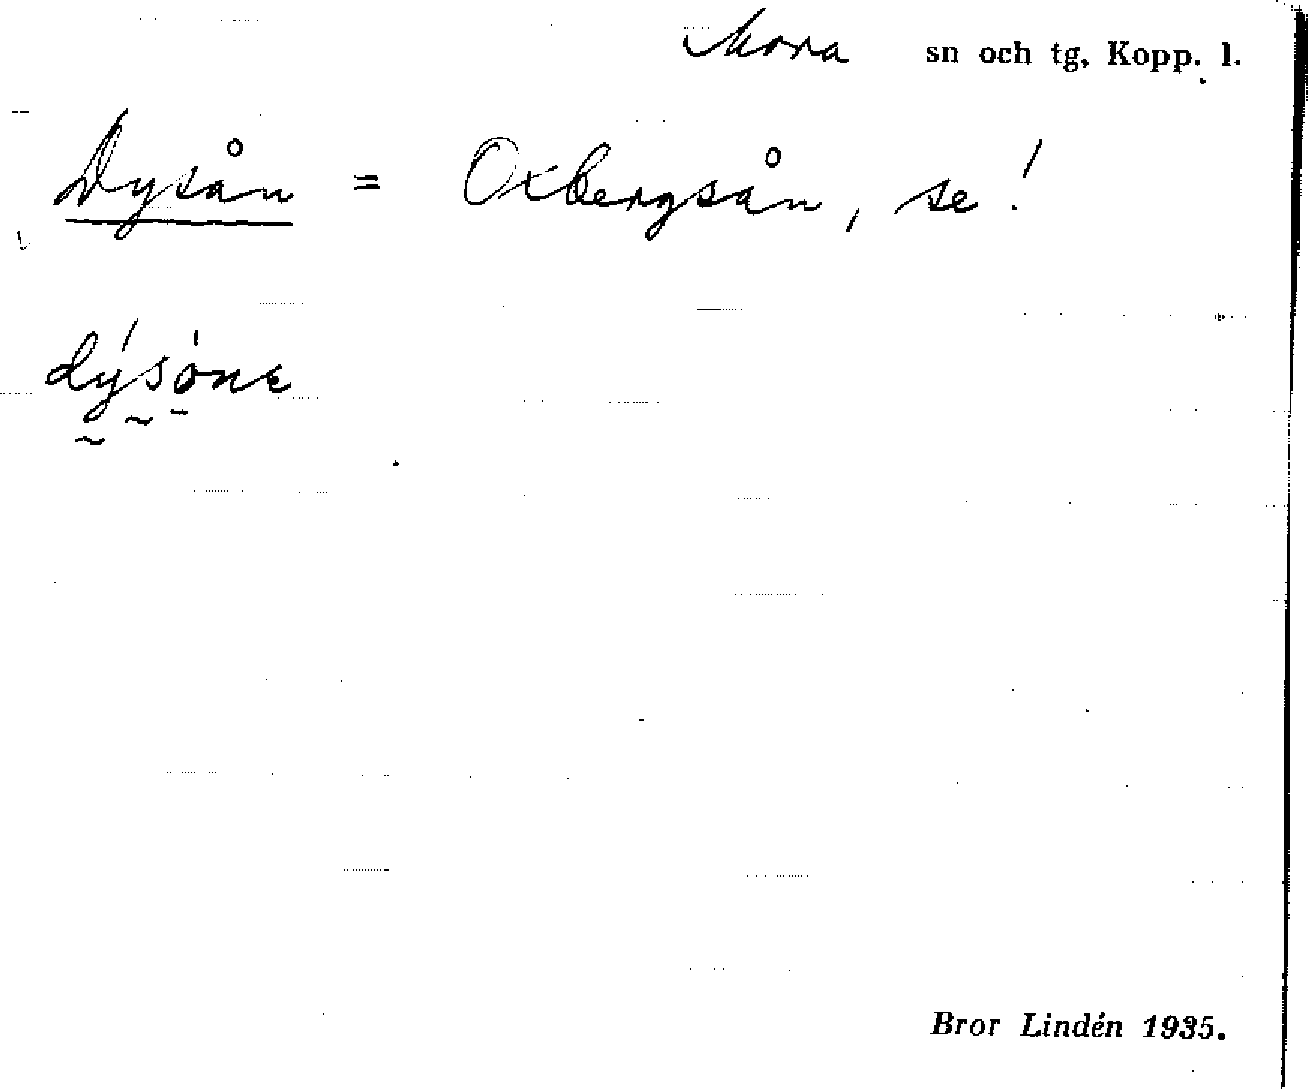 Mora sn och tg, Kopp. l.
Dysån = Oxbergsån, se!
dýsóne
Bror Lindén 1935.